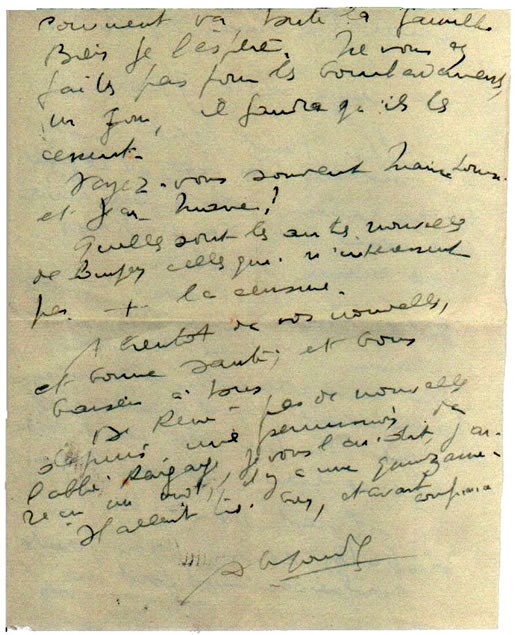 comment va toute la famille
Bien je l'espère. Ne vous en
faites pas pour les bombardements,
un jour, il faudra qu'ils les
cessent.
Voyez-vous souvent Marie Louise
et Jean Marie?
Quelles sont les autres nouvelles
de celles qui n'intéressent
pas + la censure.
A bientôt de vos nouvelles,
et bonne santé, et bons
baisers à tous
De René - pas de nouvelles
depuis une permission, de
l'abbé je vous l'ai dit, j'ai
reçu un mot, il y a une quinzaine
Il allait très bien, et avait confiance